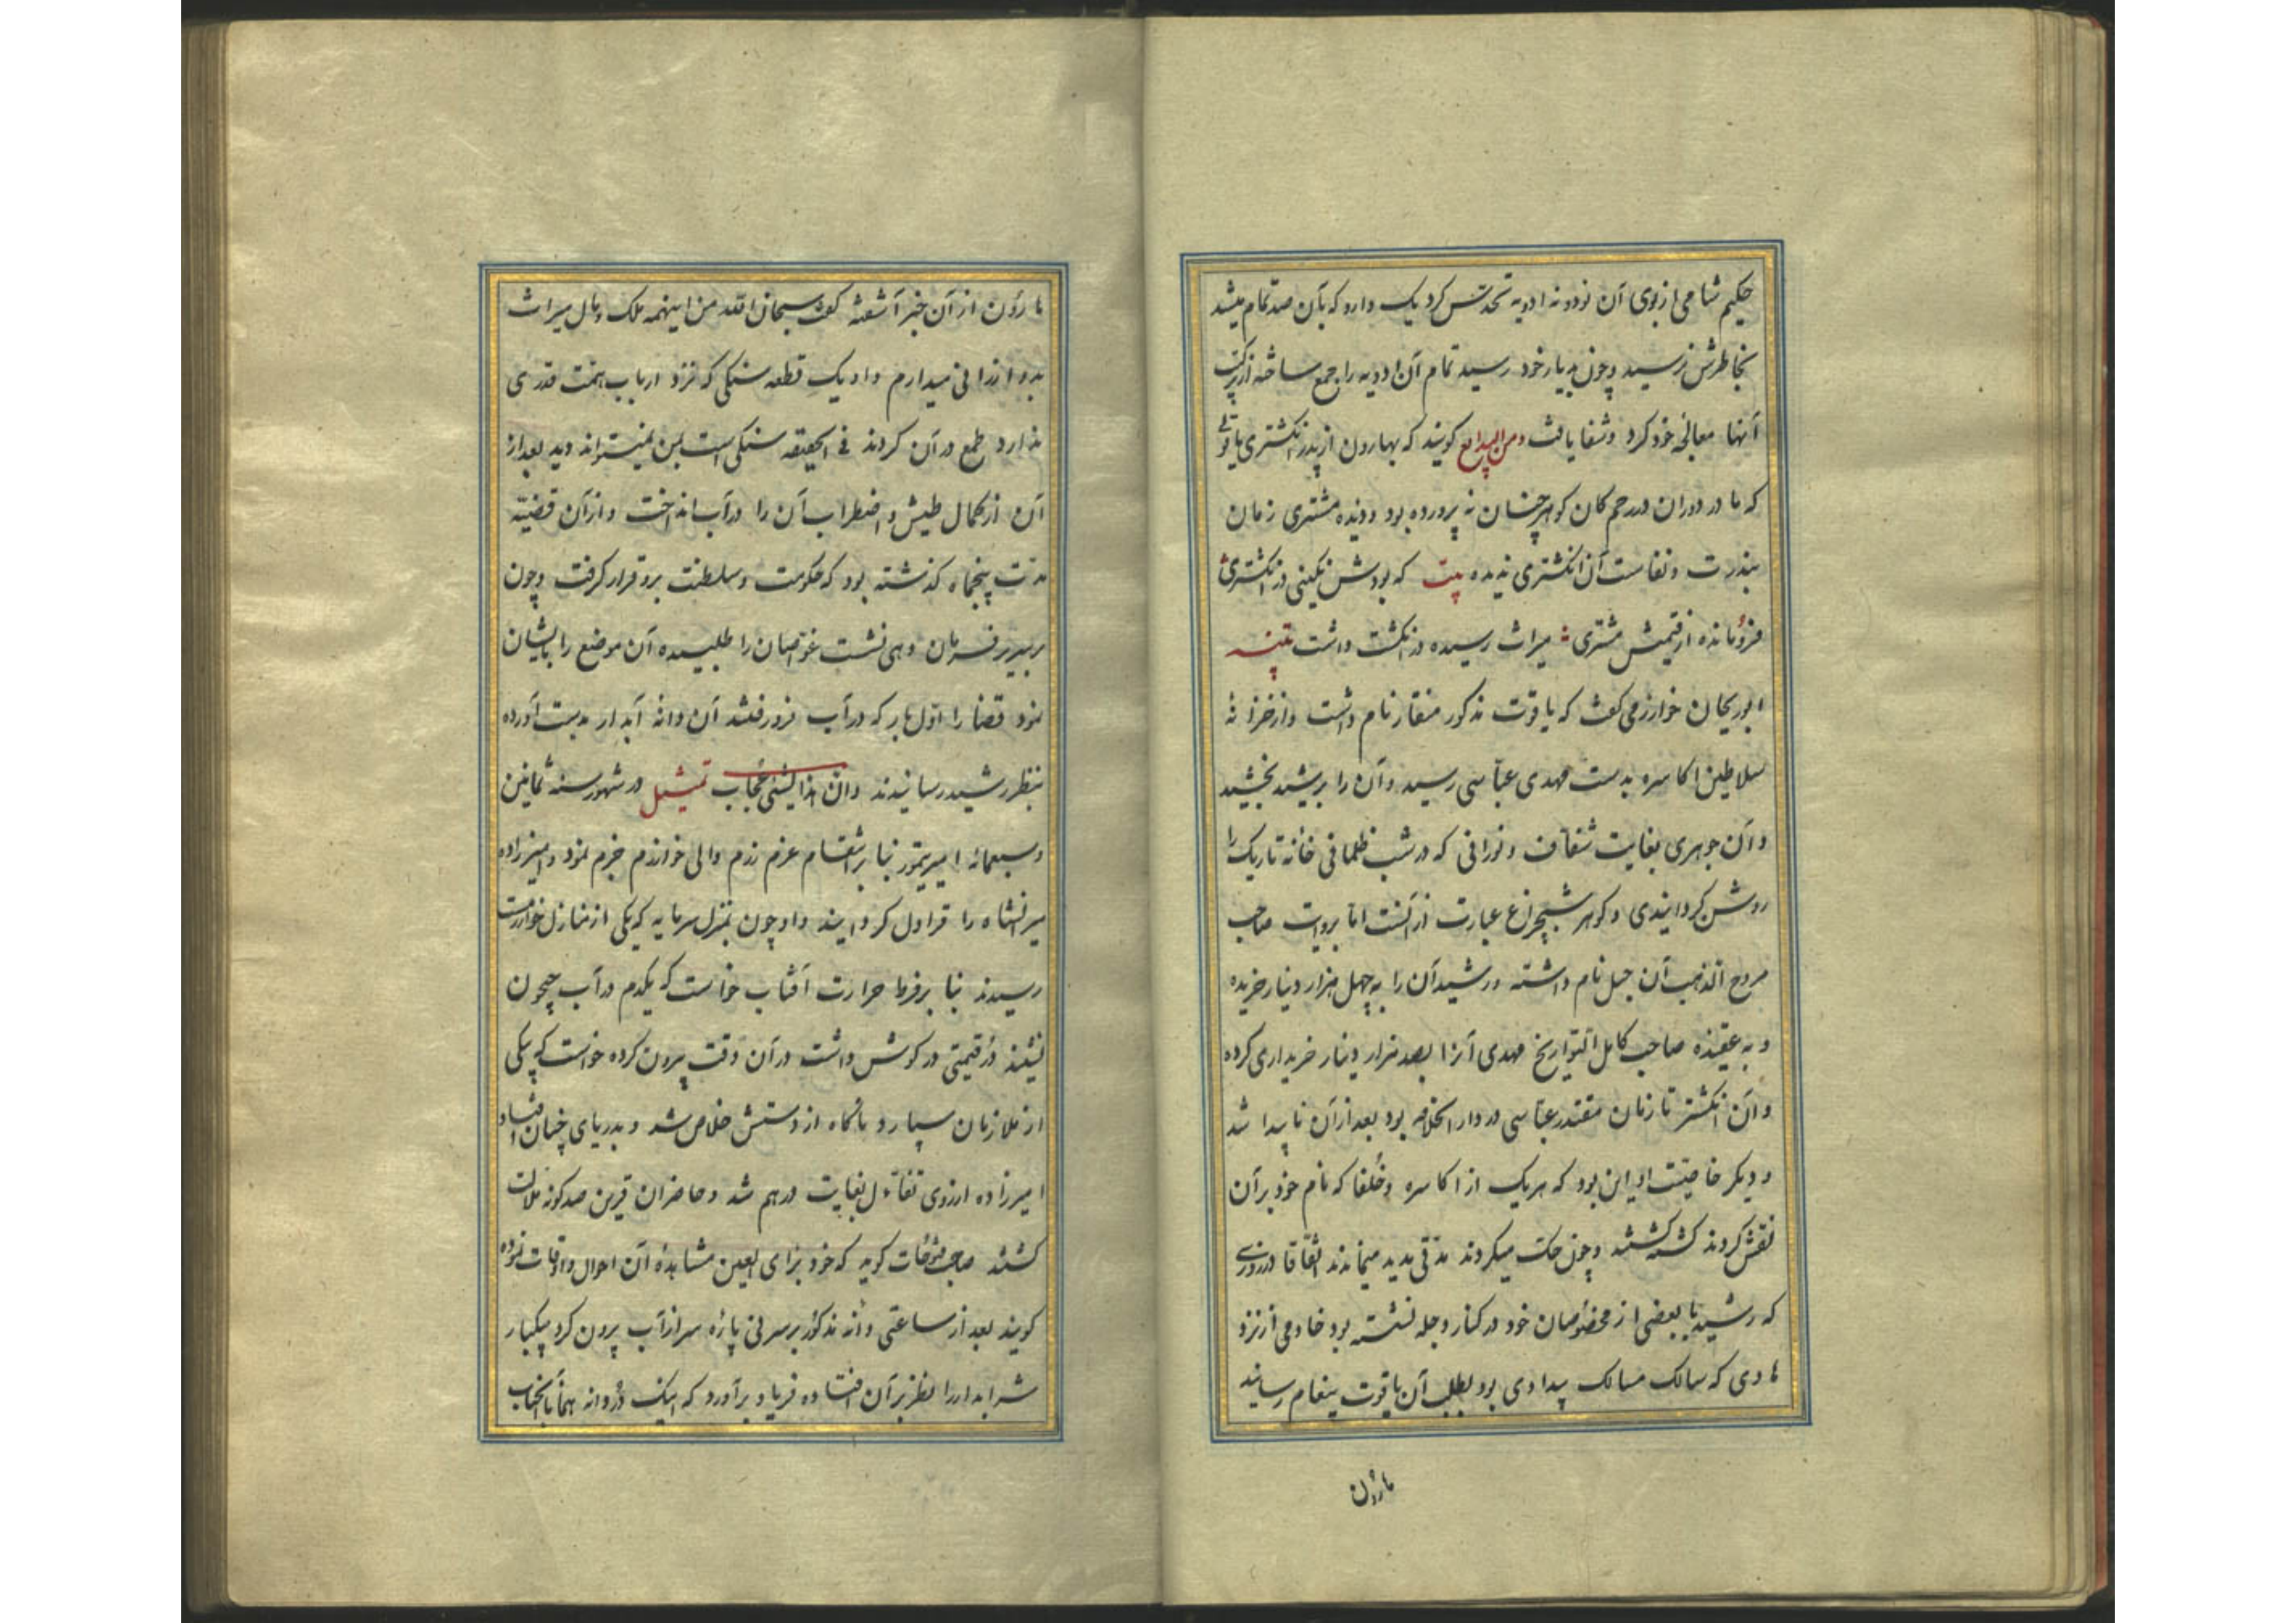 حکیم شامی از بوی آن نود و نه ادویه تحدس کرد یک دارو که بآن صد تمام میشد
بخاطرش نرسید و چون بدیار خود رسید تمام آن ادویه را جمع ساخته از ترکیب
آنها معالجه خود کرد و شفا یافت ومن البدایع کویند که بهارون از پدر انکشتری یاقوتی
که ما در دوران در رحم کان کوهر چنان نه پرورده بود و دیده مشتری زمان
بندرت و نفاست آن انکشتری ندیده بیت که بودش نکینی در انکشتری
فروُمانده از قیمتش مشتری میراث رسیده در انکشت داشت تتبیه
ابوریحان خوارزمی کفت که یاقوت مذکور منقار نام داشت و از خزانه
سلاطین اکاسره بدست مهدی عباسی رسید و آن را برشید بخشید
و آن جوهری بغایت شفاف و نورانی که در شب ظلمانی خانه تاریک را
روشن کردانیدی و کوهر شبچراغ عبارت از آنست اما بروایت صاحب
مروج الذهب آن جبل نام داشته و رشید آن را به چهل هزار دینار خریده
و به عقیده صاحب کامل التواریخ مهدی آنرا بصد هزار دینار خریداری کرده
و آن انکشتر تا زمان مقتدر عباسی در دار الخلافه بود بعد از آن ناپیدا شد
و دیکر خاصیت او این بود که هر یک از اکاسره و خلفا که نام خود بر آن
نقش کردند کشته کشتند و چون حک میکردند مدتی مدید میماندند اتفاقا در روزی
که رشید با بعضی از مخصوصان خود در کنار دجله نشسته بود خادمی از نزد
هادی که سالک مسالک بیدادی بود بطلب آن یاقوت پیغام رسانید
هارون
هارون از آن خبر آشفته کفت سبحان الله من اینهمه ملک و مال میراث
بدو ارزانی میدارم و او یک قطعه سنکی که نزد ارباب همت قدری
ندارد طمع در آن کردند فی الحقیقه سنکی است بمن نمیتواند دید بعد از
آن از کمال طیش و اضطراب آن را در آب انداخت و از آن قضیه
مدت پنجماه کذشته بود که حکومت و سلطنت برو قرار کرفت و چون
بر سریر فرمان دهی نشست غواصان را طلبیده آن موضع را بایشان
نمود قضا را اول بار که در آب فرو رفتند آن دانه آبدار بدست آورده
بنظر رشید رسانیدند وان هذا لشئی عجاب تمثیل در شهور سنه ثمانین
وسبعمائه امیر تیمور بنا بر انتقام عزم رزم والی خوارزم جزم نمود و امیرزاده
میرانشاه را قراول کردانیدند و او چون بمنزل سرمایه که یکی از منازل خوارزمست
رسیدند بنا بر فرط حرارت آفتاب خواست که یکدم در آب جیحون
نشیند دُر قیمتی در کوش داشت در آن وقت بیرون کرده خواست که بیکی
از ملازمان سپارد ناکاه از دستش خلاص شد و بدریای چنان افتاد
امیرزاده ازروی تفاءل بغایت درهم شد و حاضران قرین صد کونه ملالت
کشتند صاحب فتوحات کوید که خود برای العین مشاهده آن احوال و اوقات نموده
کویند بعد از ساعتی دانه مذکور بر سر نی پاره سر از آب بیرون کرد بیکبار
شرابدار را نظر بر آن افتاده فریاد برآورد که اینک دُردانه همان آنجناب